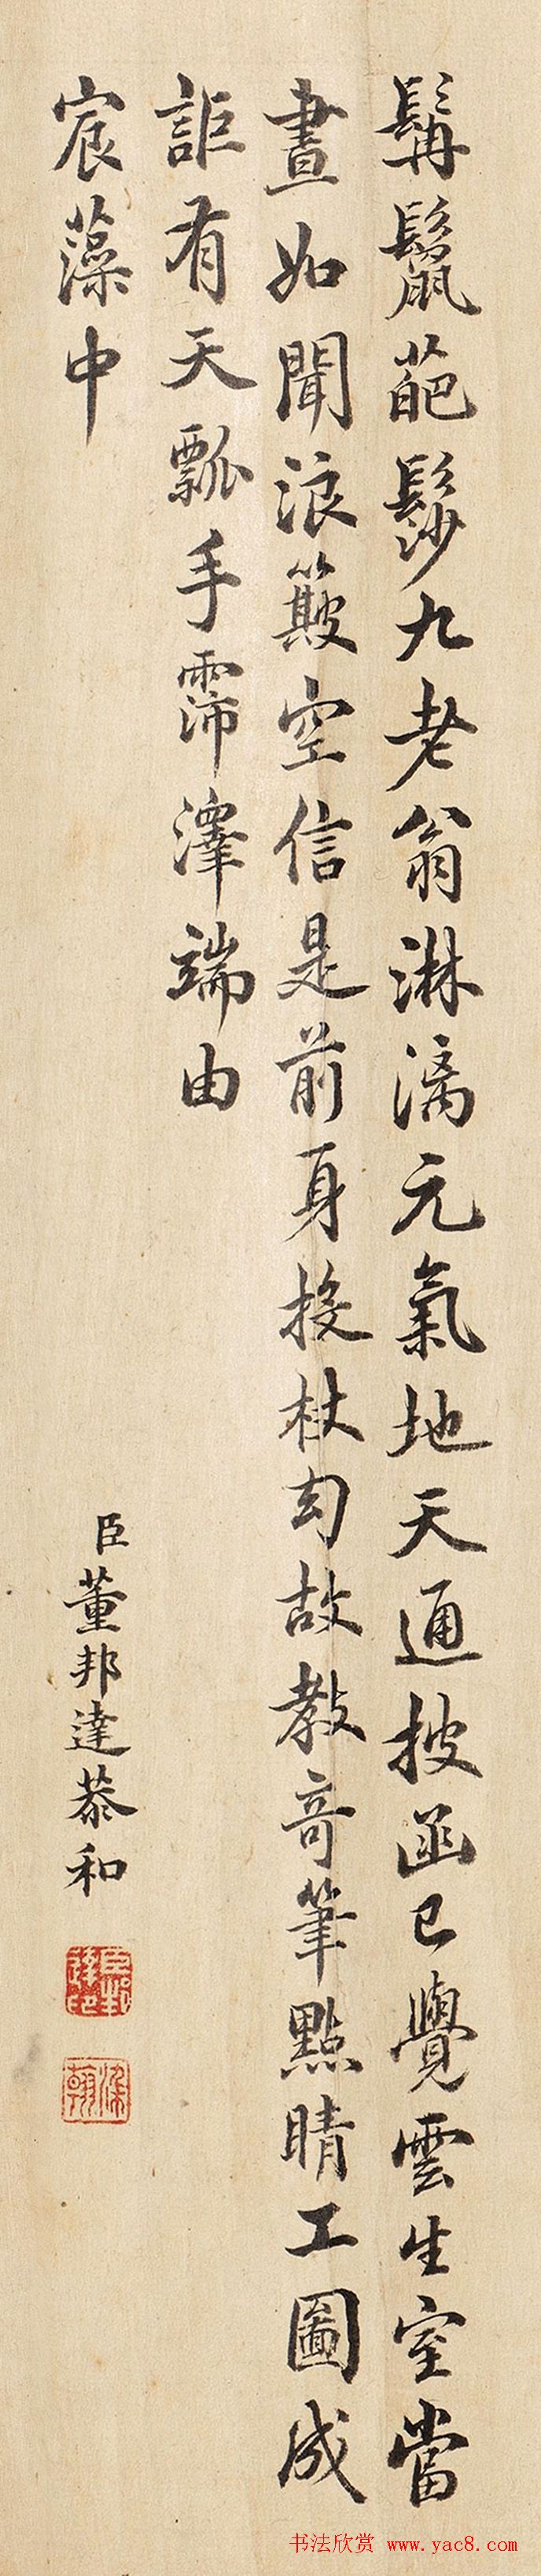 髯鬣葩髿九老翁淋漓元氣地天通披函已覺雲生室當
晝如聞浪簸空信是前身投杖幻故教奇筆點睛工圖成
詎有天瓢手霈澤端由
宸藻中
臣董邦達恭和
书法欣赏 www.yac8.com